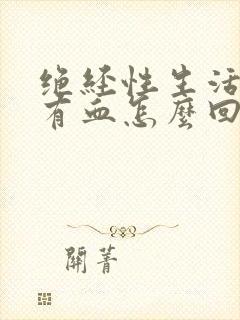 绝经性生活
有血怎麼回
關菁